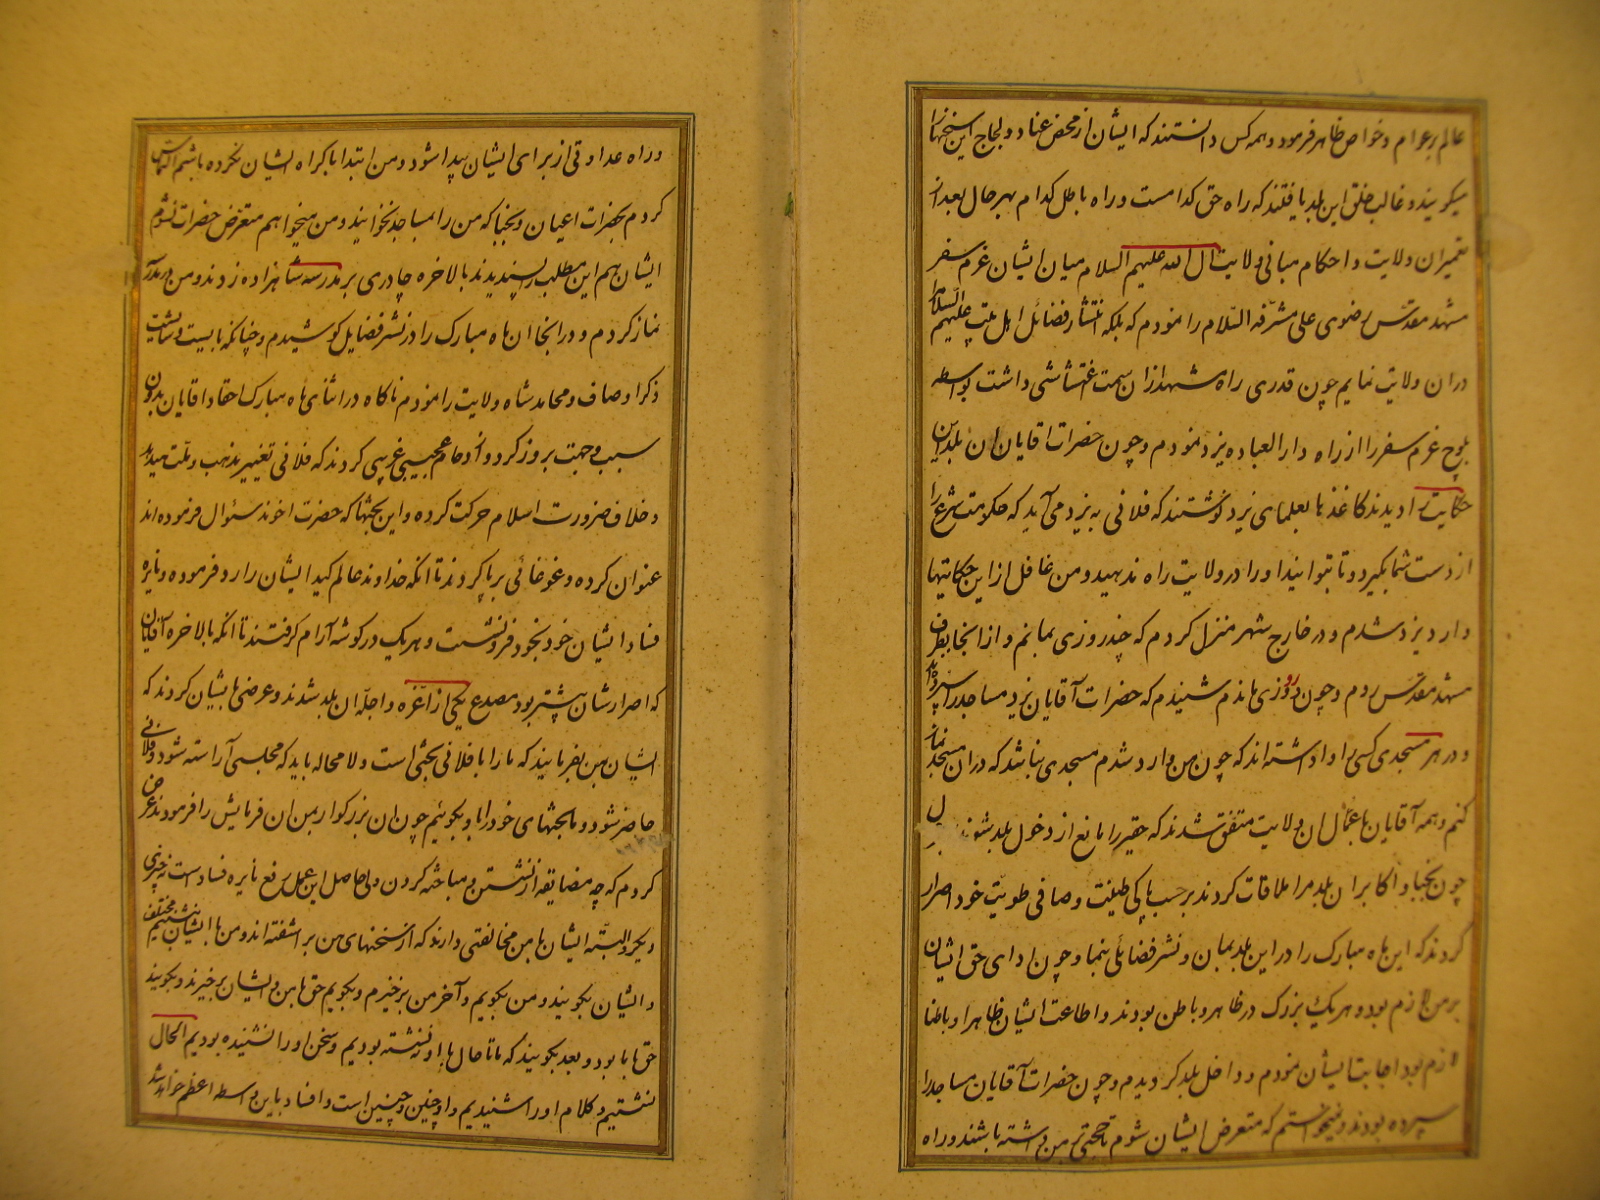 عالم بر عوام و خواص ظاهر فرمود و همه کس دانستند که ایشان از محض عناد و لجاج این سخنها را
میگویند و غالب خلق این بلد یافتند که راه حق کدامست و راه باطل کدام بهر حال بعد از
تعمیر ان ولایت و احکام مبانی ولایت آل الله علیهم السلام میان ایشان عزم سفر
مشهد مقدس رضوی علی مشرفه السّلام را نمودم که بلکه انتشار فضائل اهل بیت علیهم السلام را
در ان ولایت نمایم چون قدری راه مشهد از ان سمت اغتشاشی داشت بواسطه
بلوچ عزم سفر را از راه دار العباده یزد نمودم و چون حضرات اقایان ان بلد این
حکایت را دیدند کاغذها بعلمای یزد نوشتند که فلانی به یزد می آید که حکومت شرع را
از دست شما بگیرد و تا بتوانید او را در ولایت راه ندهید و من غافل از این حکایتها
وارد یزد شدم و در خارج شهر منزل کردم که چند روزی بمانم و از انجا بطرف
مشهد مقدس روم و چون روزی ماندم شنیدم که حضرات آقایان یزد مساجد را سپرده اند
و در هر مسجدی کسی را واداشته اند که چون من وارد شدم مسجدی نباشد که در ان مسجد نماز
کنم و همه آقایان با عمّال ان ولایت متفق شدند که حقیر را مانع از دخول بلد شوند
چون نجبا و اکابر ان بلد مرا ملاقات کردند بر حسب پاکی طینت و صافی طویّت خود اصرار
کردند که این ماه مبارک را در این بلد بمان و نشر فضائلی بنما و چون ادای حق ایشان
بر من لازم بود و هر یک بزرک در ظاهر و باطن بودند و اطاعت ایشان ظاهرا و باطنا
لازم بود اجابت ایشان نمودم و داخل بلد کردیدم و چون حضرات آقایان مساجد را
سپرده بودند و نمیخواستم که متعرض ایشان شوم تا حجتی بر من داشته باشند و راه
و راه عداوتی از برای ایشان پیدا شود و من ابتدا باکراه ایشان نکرده باشم التماس
کردم بحضرات اعیان و نجبا که من را بمساجد نخوانید و من نمیخواهم متعرض حضرات شوم
ایشان هم این مطلب را پسندیدند بالاخره چادری بر مدرسه شاهزاده زدند و من در مدرسه
نماز کردم و در انجا ان ماه مبارک را در نشر فضایل کوشیدم و چنانکه بایست و شایست
ذکر اوصاف و محامد شاه ولایت را نمودم ناکاه در اثنای ماه مبارک احقاد اقایان بدون
سبب و جهت بروز کرد و ازدحام عجیبی غریبی کردند که فلانی تغییر مذهب و ملت میدهد
و خلاف ضرورت اسلام حرکت کرده و این بحثها که حضرت اخوند سئوال فرموده اند
عنوان کرده و غوغائی بر پا کردند تا انکه خداوند عالم کید ایشان را رد فرموده و نایره
فساد ایشان خود بخود فرو نشست و هر یک در کوشه آرام کرفتند تا انکه بالاخره آقایان
که اصرارشان بیشتر بود مصدع یکی از اعزه و اجلّه ان بلد شدند و عرضی بایشان کردند که
ایشان بمن بفرمایند که ما را با فلانی بحثی است و لا محاله باید که مجلسی آراسته شود و فلانی
حاضر شود و ما بحثهای خود را باو بکوئیم چون ان بزرکوار بمن ان فرمایش را فرمودند عرض
کردم که چه مضایقه از نشستن و مباحثه کردن ولی حاصل این عمل رفع نایره فساد است نه چیزی
دیکر و البتّه ایشان با من مخالفتی دارند که از سخنهای من بر اشفته اند و من با ایشان بنشینیم مختلف
و ایشان بکویند و من بکویم و آخر من برخیزم و بکویم حق با من و ایشان برخیزند و بکویند
حق با ما بود و بعد بکویند که ما تا حال با او ننشسته بودیم و سخن او را نشنیده بودیم الحال
نشستیم و کلام او را شنیدیم و او چنین و چنین است و افساد باین واسطه اعظم خواهد شد